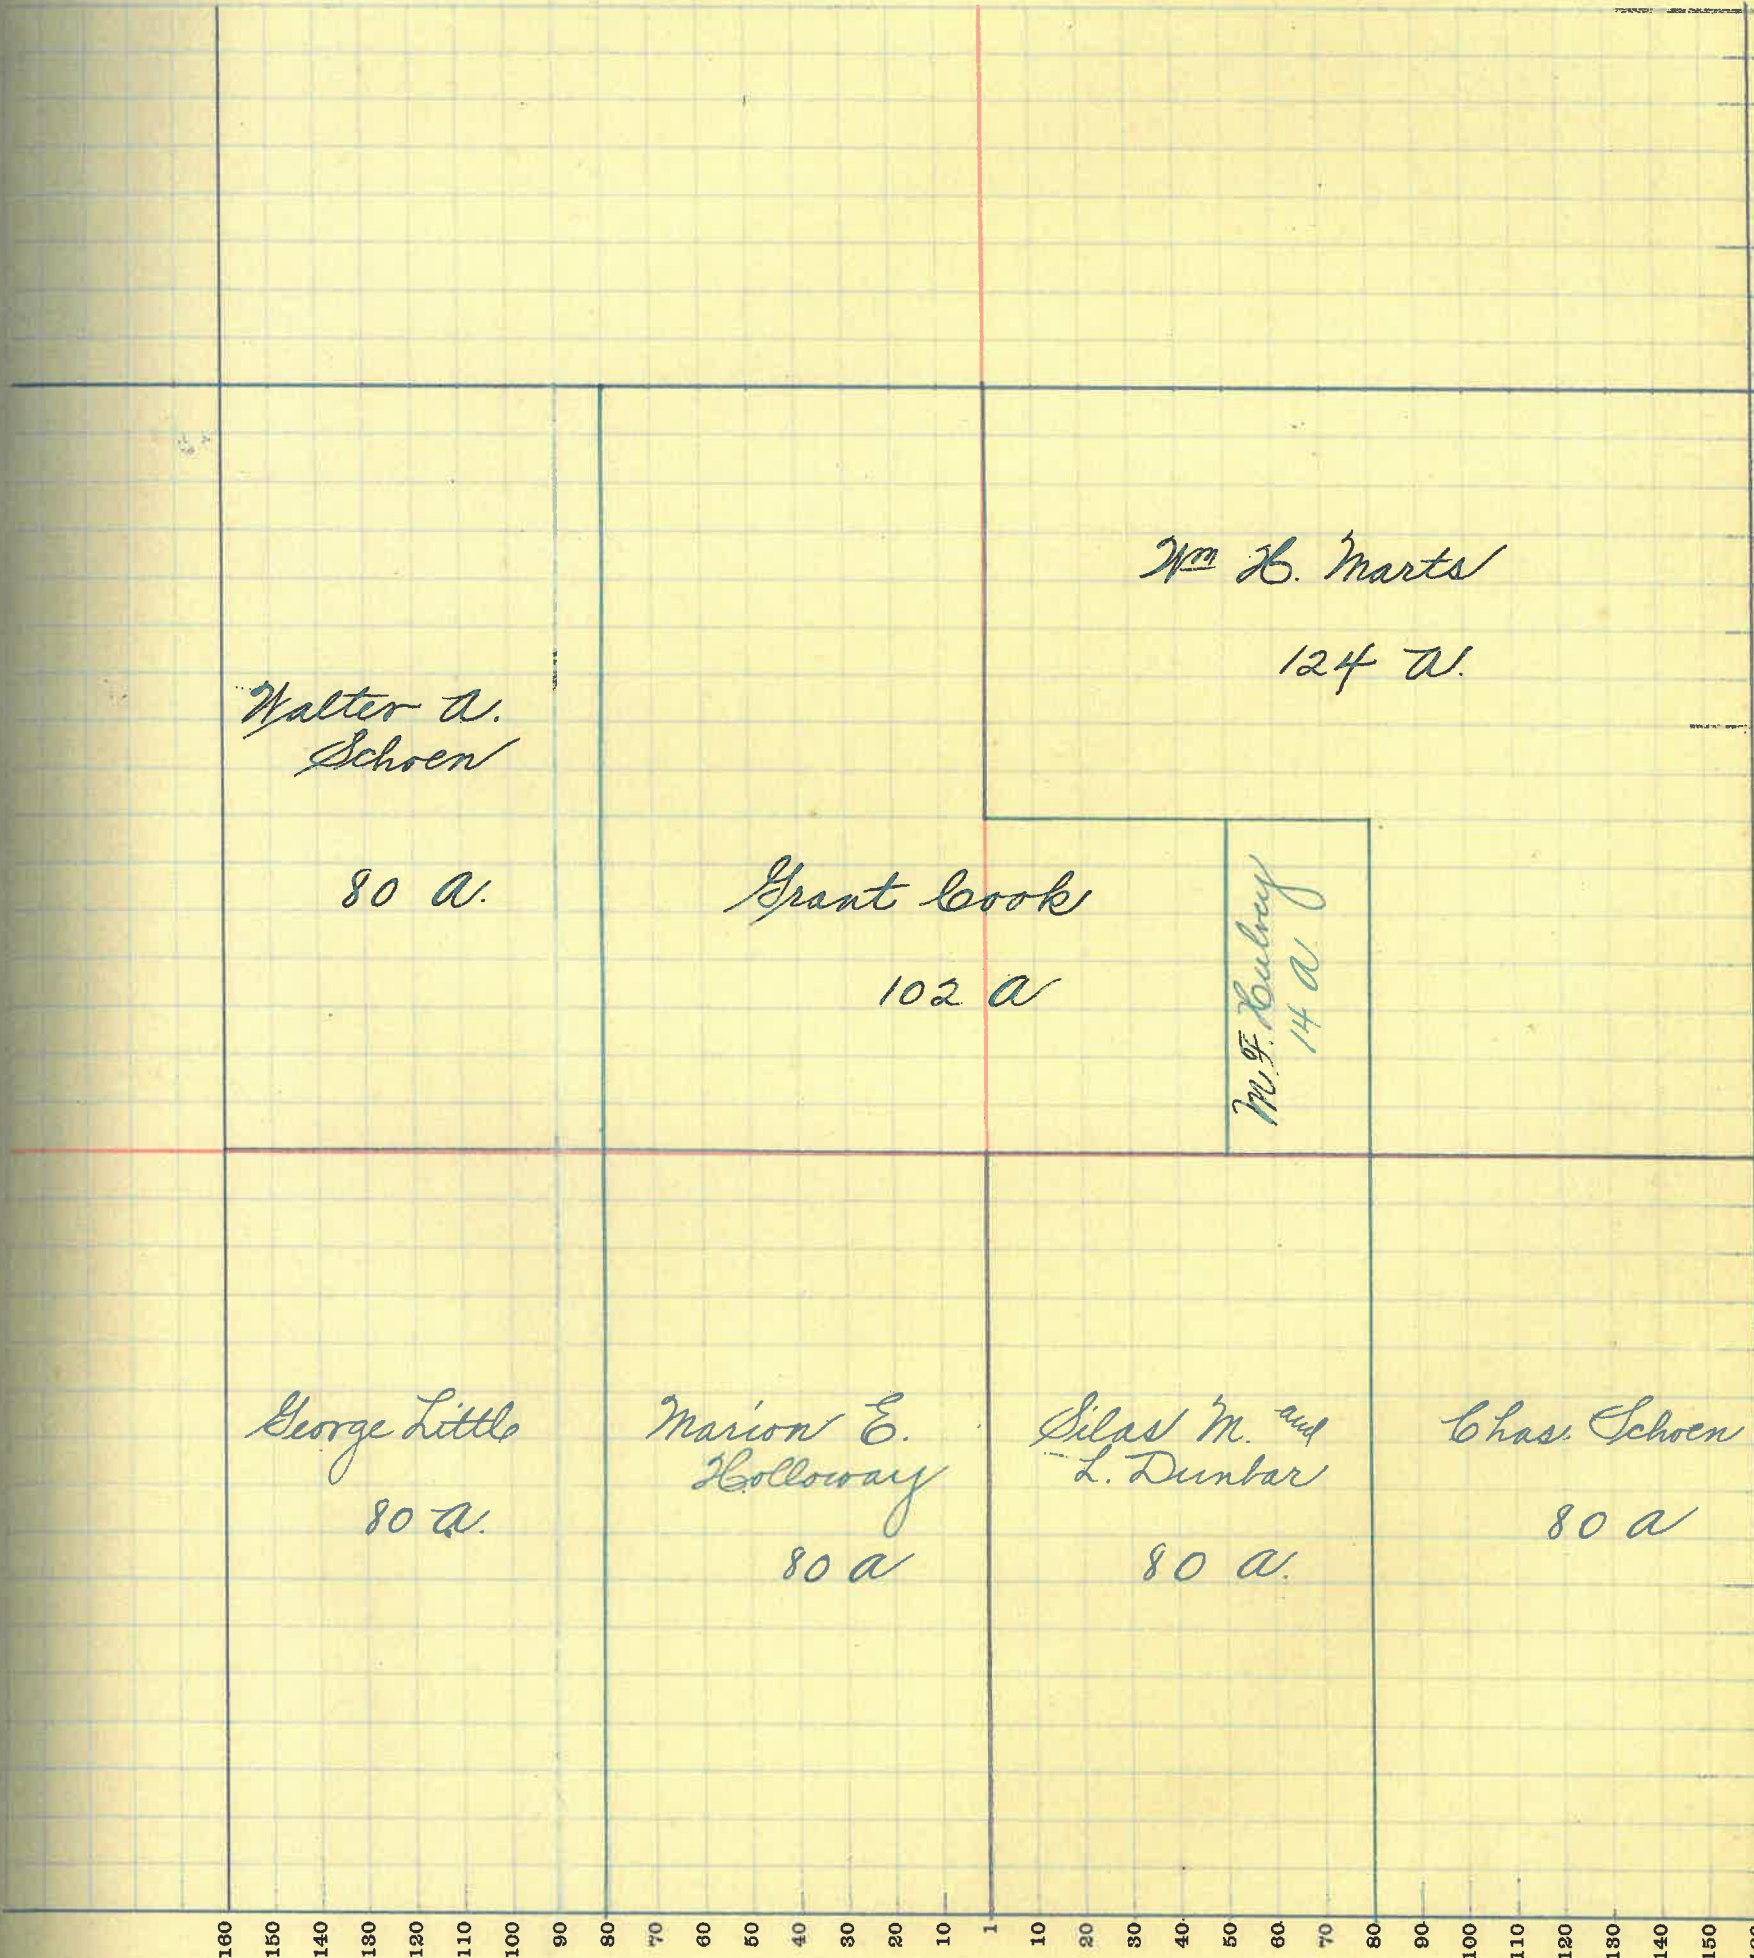 Wm H. Marts
124 A.
Walter A.
Schoen
80 A.
Grant Cook
102 A
M. F.
14 A
George Little
80 A.
Marion E.
Holloway
80 A
Silas M. and
L. Dunbar
80 A.
Chas. Schoen
80 A
160 150 140 130 120 110 100 90 80 70 60 50 40 30 20 10 1 10 20 30 40 50 60 70 80 90 100 110 120 130 140 150